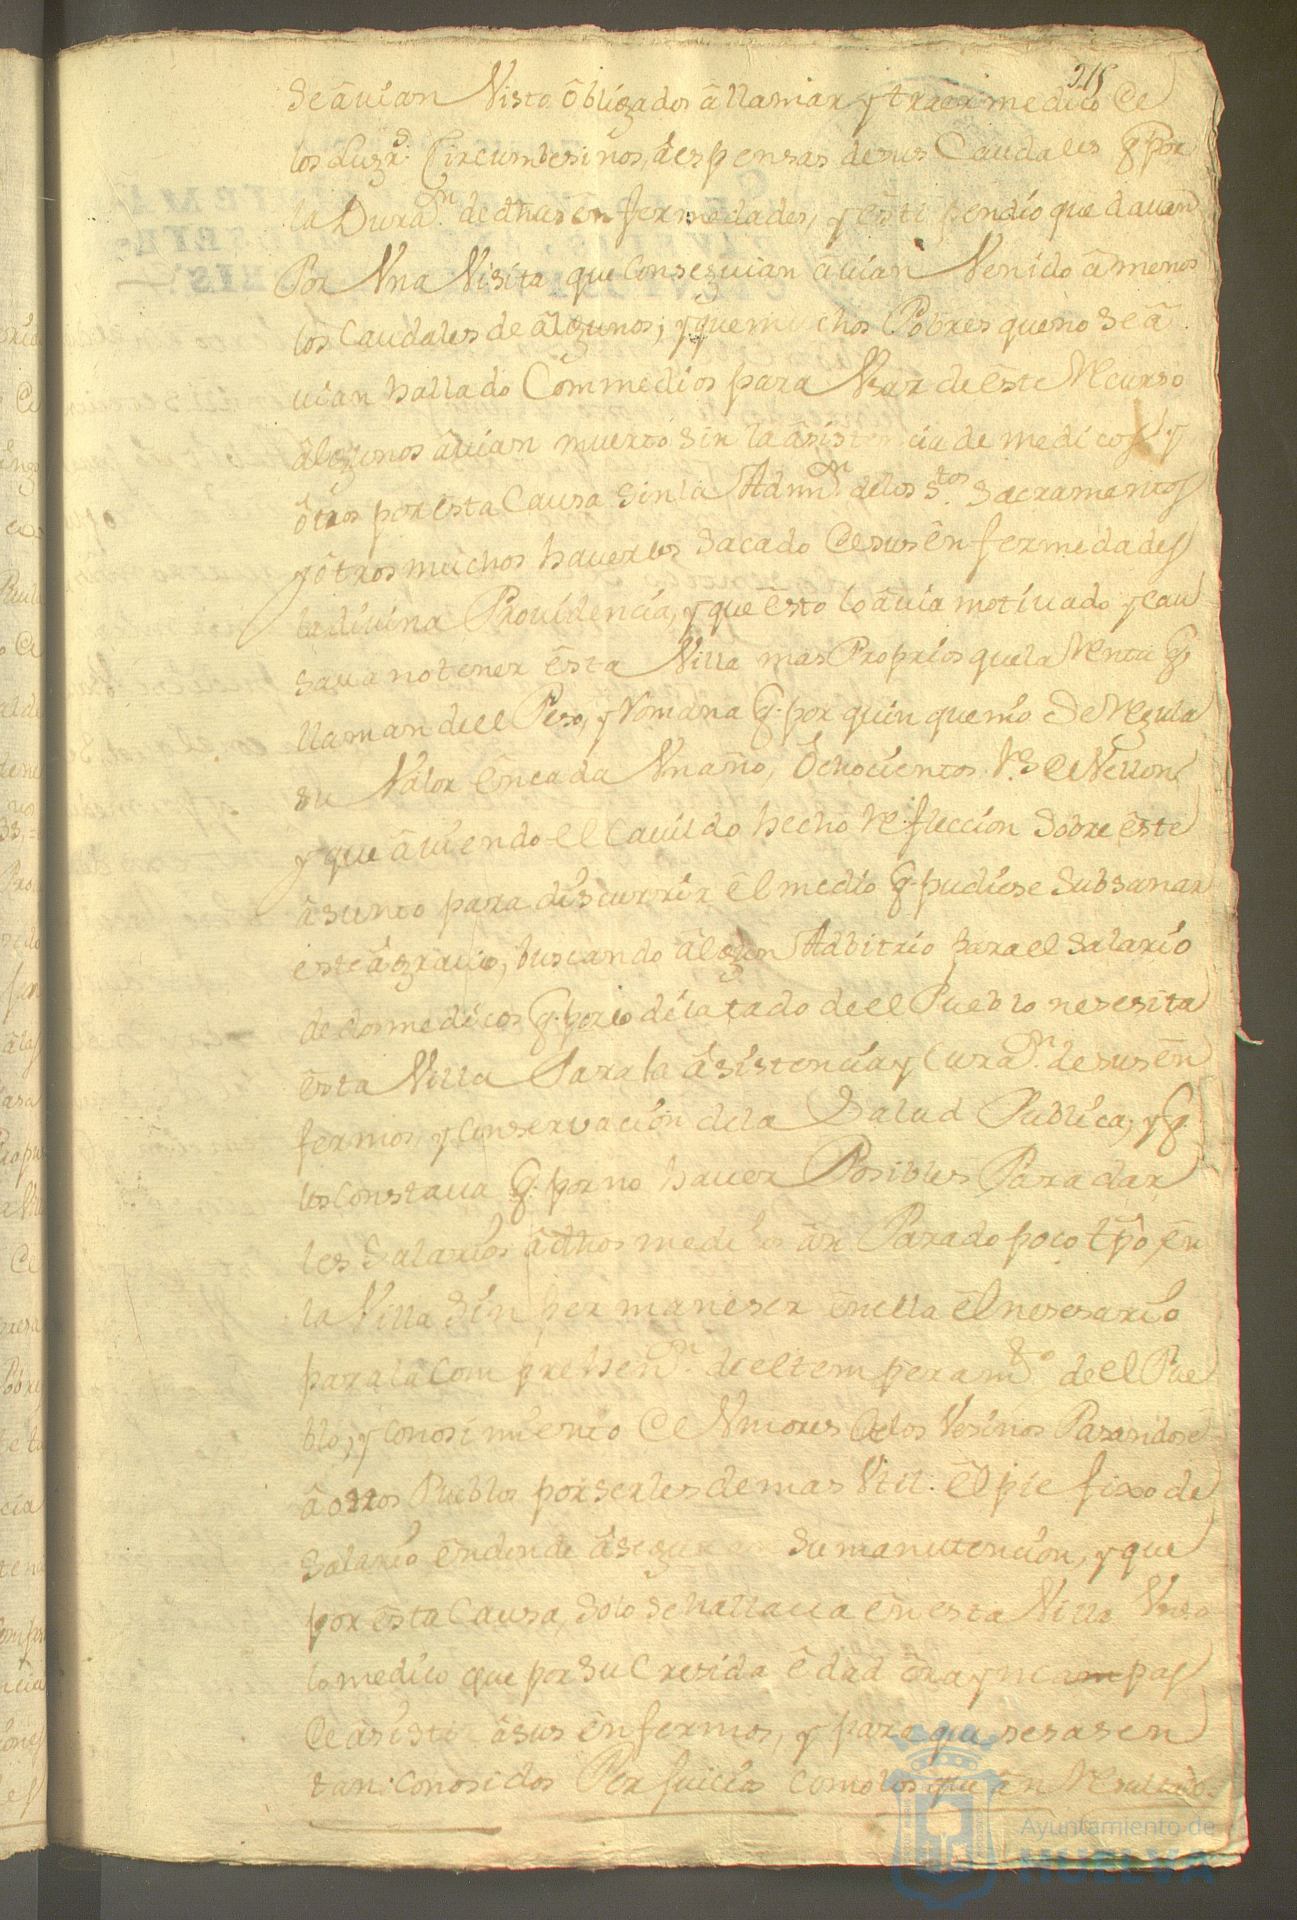 215
Se âuian Visto ôbligados âllamar y traer medico de
los Lugs. Circumbesinos, âespensas desus Caudales q̃ por
la Duraon. de dhas enfermedades, y esti pendio que dauan
Por Vna Visita que Conseguian âuian Venido âmenos
los Caudales de âlgunos; y que muchos Pobres que no se â
uian hallado Com medios para Vsar de êste Recurso
âlgunos âuian muerto sin la âsistencia de medicos y
ôtros por esta Causa sin la Admon. de los Stos. Sacramentos
y ôtros muchos hauerlos Sacado de sus ênfermedades
la diuina Prouidencia, y que êsto lo âuia motiuado y cau
saua no tener êsta Villa mas Proprios que la Renta q̃
llaman de el Peso, y Romana q̃. por quin quenio se Regula
su Valor ên cada Vn año, Ôchocientos Rs. de Vellon
y que âuiendo el Cauildo hecho Refleccion Sobre êste
âsunto para discurrir êl medio q̃ pudiese Subsanar
este âgrauio, buscando âlgun Adbitrio para el Salario
de dos medicos q̃. por lo dilatado de el Pueblo nesesita
êsta Villa Para la âsistencia y Curaon. de sus ên
fermos, y conservacion de la Salud Publica; y q̃
les Constaua q̃. por no hauer Posibles Para dar
les Salarios â dhos medicos ân Parado poco tpô, ên
la Villa Sin permaneser ên ella êl nesesario
para la Comprehenon. de el temperamto. de el Pue
blo, y conosimiento de Vmores de los Vesinos Pasandose
â otros Pueblos por serles de mas Vtil. êl pie fixo de
Salario ên donde âseguran su manutencion, y que
por êsta Causa, solo se hallaua ên esta Villa Vn so
lo medico que por su Cresida êdad êra yncampas
de âsistir âsus ênfermos, y para que sesasen
tan conosidos Perjuicios como los que ân Resultado
Ayuntamiento de
HUELVA